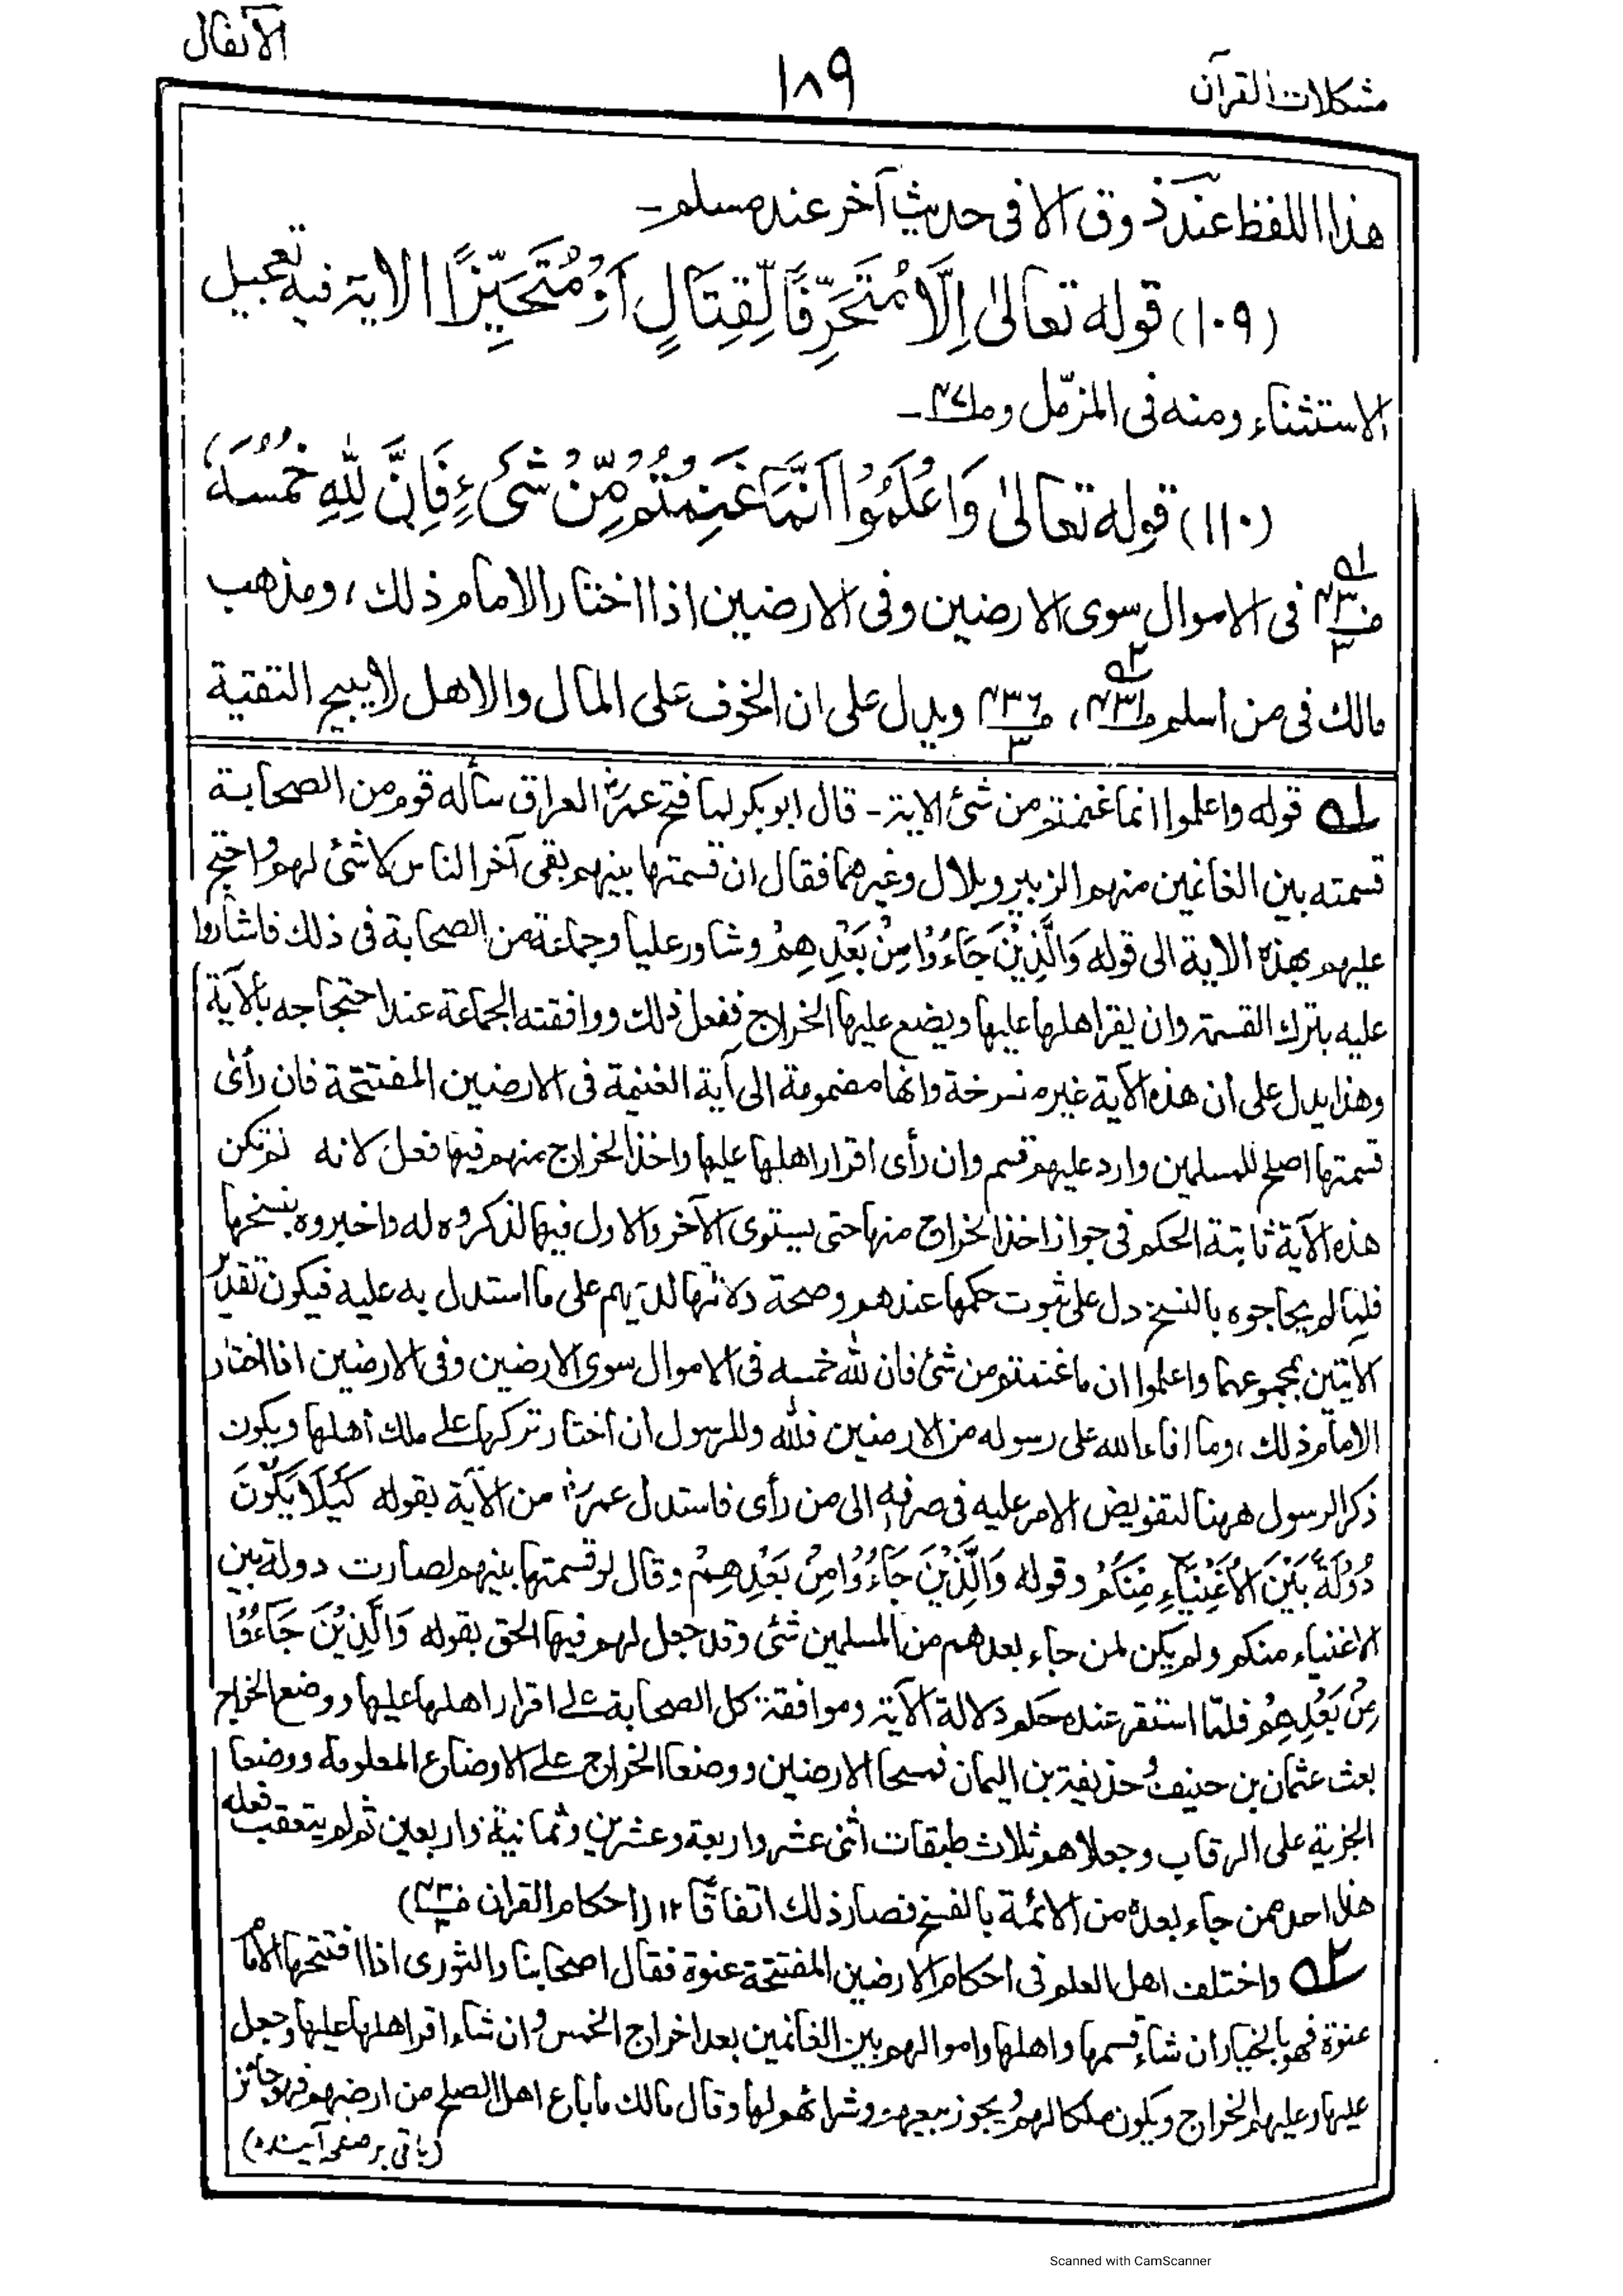 الأنفال
۱۸۹
مشكلات القرآن
هذا اللفظ عند ذوق الا فى حديث آخر عند مسلم ـ
(۱۰۹) قوله تعالىٰ اِلَّا مُتَحَرِّفًا لِّقِتَالٍ اَوْ مُتَحَيِّزًا الاية فيه تعجيل
الاستثناء ومنه فى المزمّل
(۱۱۰) قوله تعالىٰ وَاعْلَمُوْا اَنَّمَا غَنِمْتُمْ مِّنْ شَىْءٍ فَاِنَّ لِلّٰهِ خُمُسَهٗ،
فى الاموال سوى الارضين وفى الارضين اذا اختار الامام ذلك، ومذهب
مالك فى من اسلم ويدل على ان الخوف على المال والاهل لا يبيح التقية
ـ۱ـه قوله واعلموا انما غنمتم من شئ الاية ـ قال ابو بكر لما فتح عمر رض العراق سأله قوم من الصحابة
قسمته بين الغانمين منهم الزبير وبلال وغيرهما فقال ان قسمتها بينهم بقى آخر الناس لا شئ لهم واحتج
عليهم بهذه الاية الى قوله وَالَّذِيْنَ جَاءُوْا مِنْ بَعْدِهِمْ وشاور عليا وجماعة من الصحابة فى ذلك فاشاروا
عليه بترك القسمة وان يقر اهلها عليها ويضع عليها الخراج ففعل ذلك ووافقته الجماعة عند احتجاجه بالآية
وهذا يدل على أن هذه الآية غير منسوخة وانها مضمومة الى آية الغنيمة فى الارضين المفتتحة فان رأى
قسمتها اصلح للمسلمين وارد عليهم قسم وان رأى اقرار اهلها عليها واخذ الخراج منهم فيها فعل لانه لو لم تكن
هذه الآية ثابتة الحكم فى جواز اخذ الخراج منها حتى يستوى الآخر والاول فيها لذكروه له واخبروه بنسخها
فلما لم يحاجوه بالنسخ دل على ثبوت حكمها عندهم وصحة دلالتها لديهم على ما استدل به عليه فيكون تقدير
الآيتين بمجموعهما واعلموا ان ما غنمتم من شئ فان لله خمسه فى الاموال سوى الارضين وفى الارضين اذا اختار
الامام ذلك، وما افاء الله على رسوله من الارضين فلله وللرسول ان اختار تركها على ملك أهلها ويكون
ذكر الرسول ههنا لتفويض الامر عليه فى صرفه الى من رأى فاستدل عمر رض من الآية بقوله كَيْلَا يَكُوْنَ
دُوْلَةً بَيْنَ الْاَغْنِيَاءِ مِنْكُمْ وقوله وَالَّذِيْنَ جَاءُوْا مِنْ بَعْدِهِمْ وقال لو قسمتها بينهم لصارت دولة بين
الاغنياء منكم ولم يكن لمن جاء بعدهم من المسلمين شئ وقد جعل لهم فيها الحق بقوله وَالَّذِيْنَ جَاءُوْا
مِنْ بَعْدِهِمْ فلمّا استقر عنده حكم دلالة الآية وموافقة كل الصحابة على اقرار اهلها عليها ووضع الخراج
بعث عثمان بن حنيف وحذيفة بن اليمان فمسحا الارضين ووضعا الخراج على الاوضاع المعلومة ووضعا
الجزية على الرقاب وجعلاهم ثلاث طبقات اثنى عشر واربعة وعشرين وثمانية واربعين ثم لم يتعقب فعله
هذا احد ممن جاء بعده من الائمة بالفسخ فصار ذلك اتفاقًا ۱۲ (احكام القران
ـ۲ـه واختلف اهل العلم فى احكام الارضين المفتتحة عنوة فقال اصحابنا والثورى اذا افتتحها الامام
عنوة فهو بالخيار ان شاء قسمها واهلها واموالهم بين الغانمين بعد اخراج الخمس وان شاء اقر اهلها عليها وجعل
عليها وعليهم الخراج ويكون ملكا لهم ويجوز بيعهم وشرائهم لها وقال مالك ما باع اهل الصلح من ارضهم فهو جائز
(باقى بر صفحه آينده)
Scanned with CamScanner